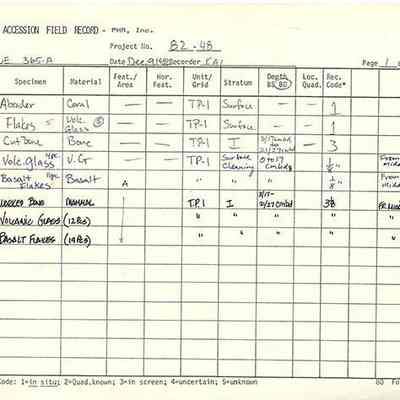 ACCESSION FIELD RECORD - PHRI, Inc.
Project No. 82-48
365-A Date Dec. Recorder Page 1
Specimen Material Feat./Area Hor. Feat. Unit/Grid Stratum Depth BS BD Loc. Quad. Rec. Code*
Abader Coral — — TP-1 Surface — — 1
Flakes 5 Volc. Glass 5 — — TP-1 Surface — — 1
Cut Bone Bone — — TP-1 I — 3
Volc. glass V.G — — TP-1 Surface Cleaning 0 to 57 cmbd 1/8" From
Basalt Flakes Basalt A " " " 1/8" From
WORKED BONE MAMMAL TP-1 I 21/27 cmbd 3 1/8
VOLCANIC GLASS (12 PCS) " " "
BASALT FLAKES (14 PCS) " " "
Code: 1=in situ; 2=Quad.known; 3=in screen; 4=uncertain; 5=unknown 80 Fo